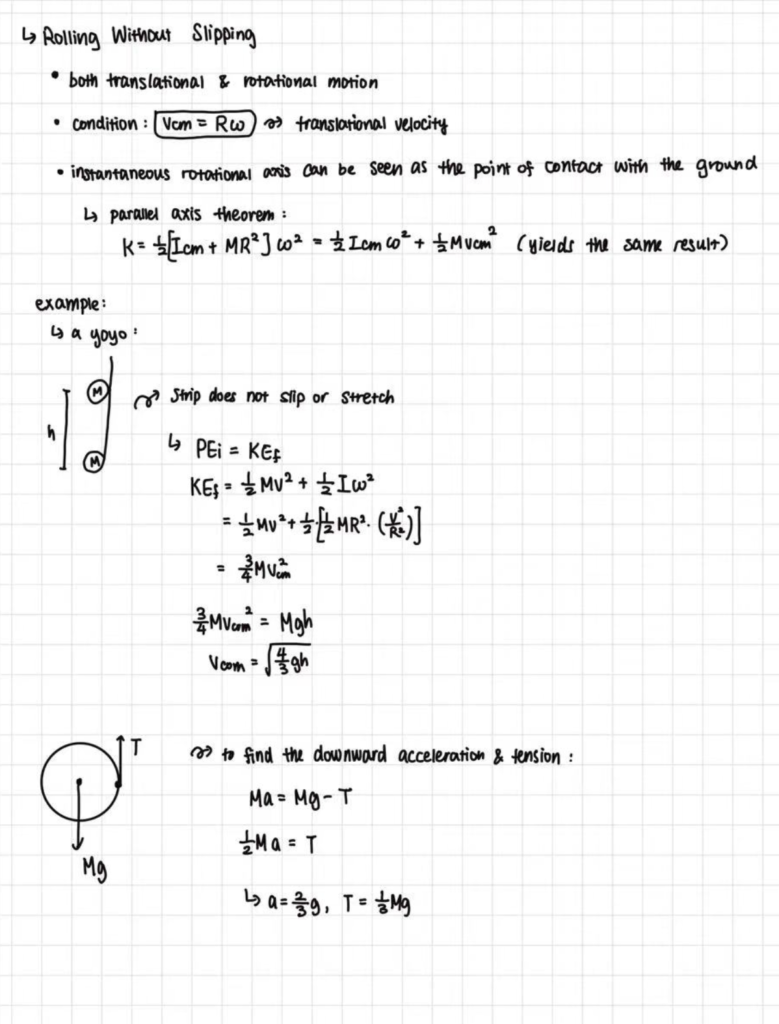 ↳ Rolling Without Slipping
• both translational & rotational motion
• condition : Vcm = Rω ⇝ translational velocity
• instantaneous rotational axis can be seen as the point of contact with the ground
↳ parallel axis theorem :
K = ½[Icm + MR²] ω² = ½ Icm ω² + ½ Mvcm² (yields the same result)
example:
↳ a yoyo :
M
h
M
⇝ Strip does not slip or stretch
↳ PEi = KEf
KEf = ½ Mv² + ½ Iω²
= ½ Mv² + ½ [½ MR² · (v²/R²)]
= ¾ Mv²cm
¾ Mvcom² = Mgh
Vcom = √(4/3 gh)
T
Mg
⇝ to find the downward acceleration & tension :
Ma = Mg - T
½ Ma = T
↳ a = ⅔ g, T = ⅓ Mg